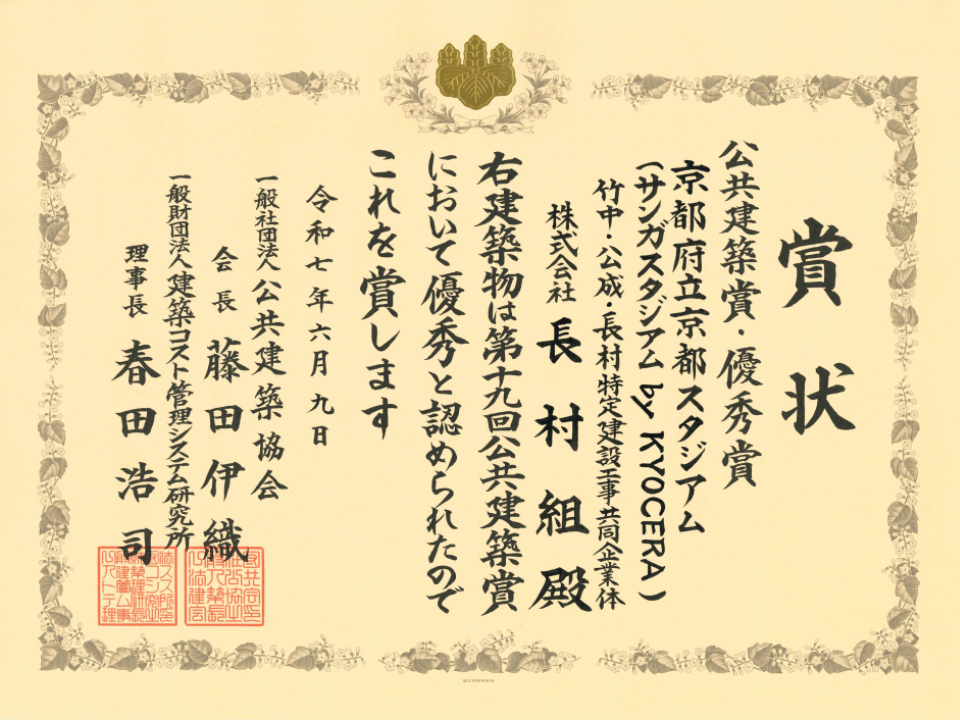 賞状
公共建築賞・優秀賞
京都府立京都スタジアム
(サンガスタジアム by KYOCERA)
竹中・公成・長村特定建設工事共同企業体
株式会社 長村組殿
右建築物は第十九回公共建築賞
において優秀と認められたので
これを賞します
令和七年六月九日
一般社団法人公共建築協会
会長 藤田伊織
一般財団法人建築コスト管理システム研究所
理事長 春田浩司